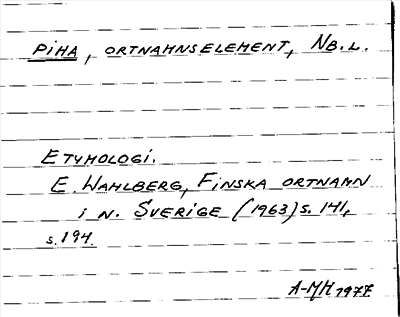 PIHA, ORTNAMNSELEMENT, NB.L.
ETYMOLOGI.
E. WAHLBERG, FINSKA ORTNAMN
I N. SVERIGE (1963) S. 141,
S. 194.
A-MH 1977